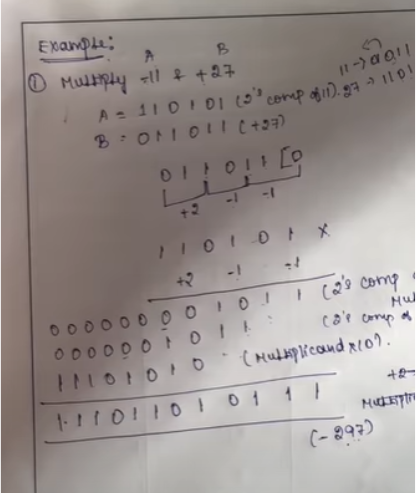 Example:
A B
① Multiply -11 & +27
11 → 0011
A = 110101 (2's comp of 11). 27 → 1101
B = 011011 (+27)
011011[0
+2 -1 -1
110101 x
+2 -1 -1
000000001011 (2's comp
0000001011 (2's comp of
11101010 (Multiplicand x10).
+2→
111011010111
(-297)